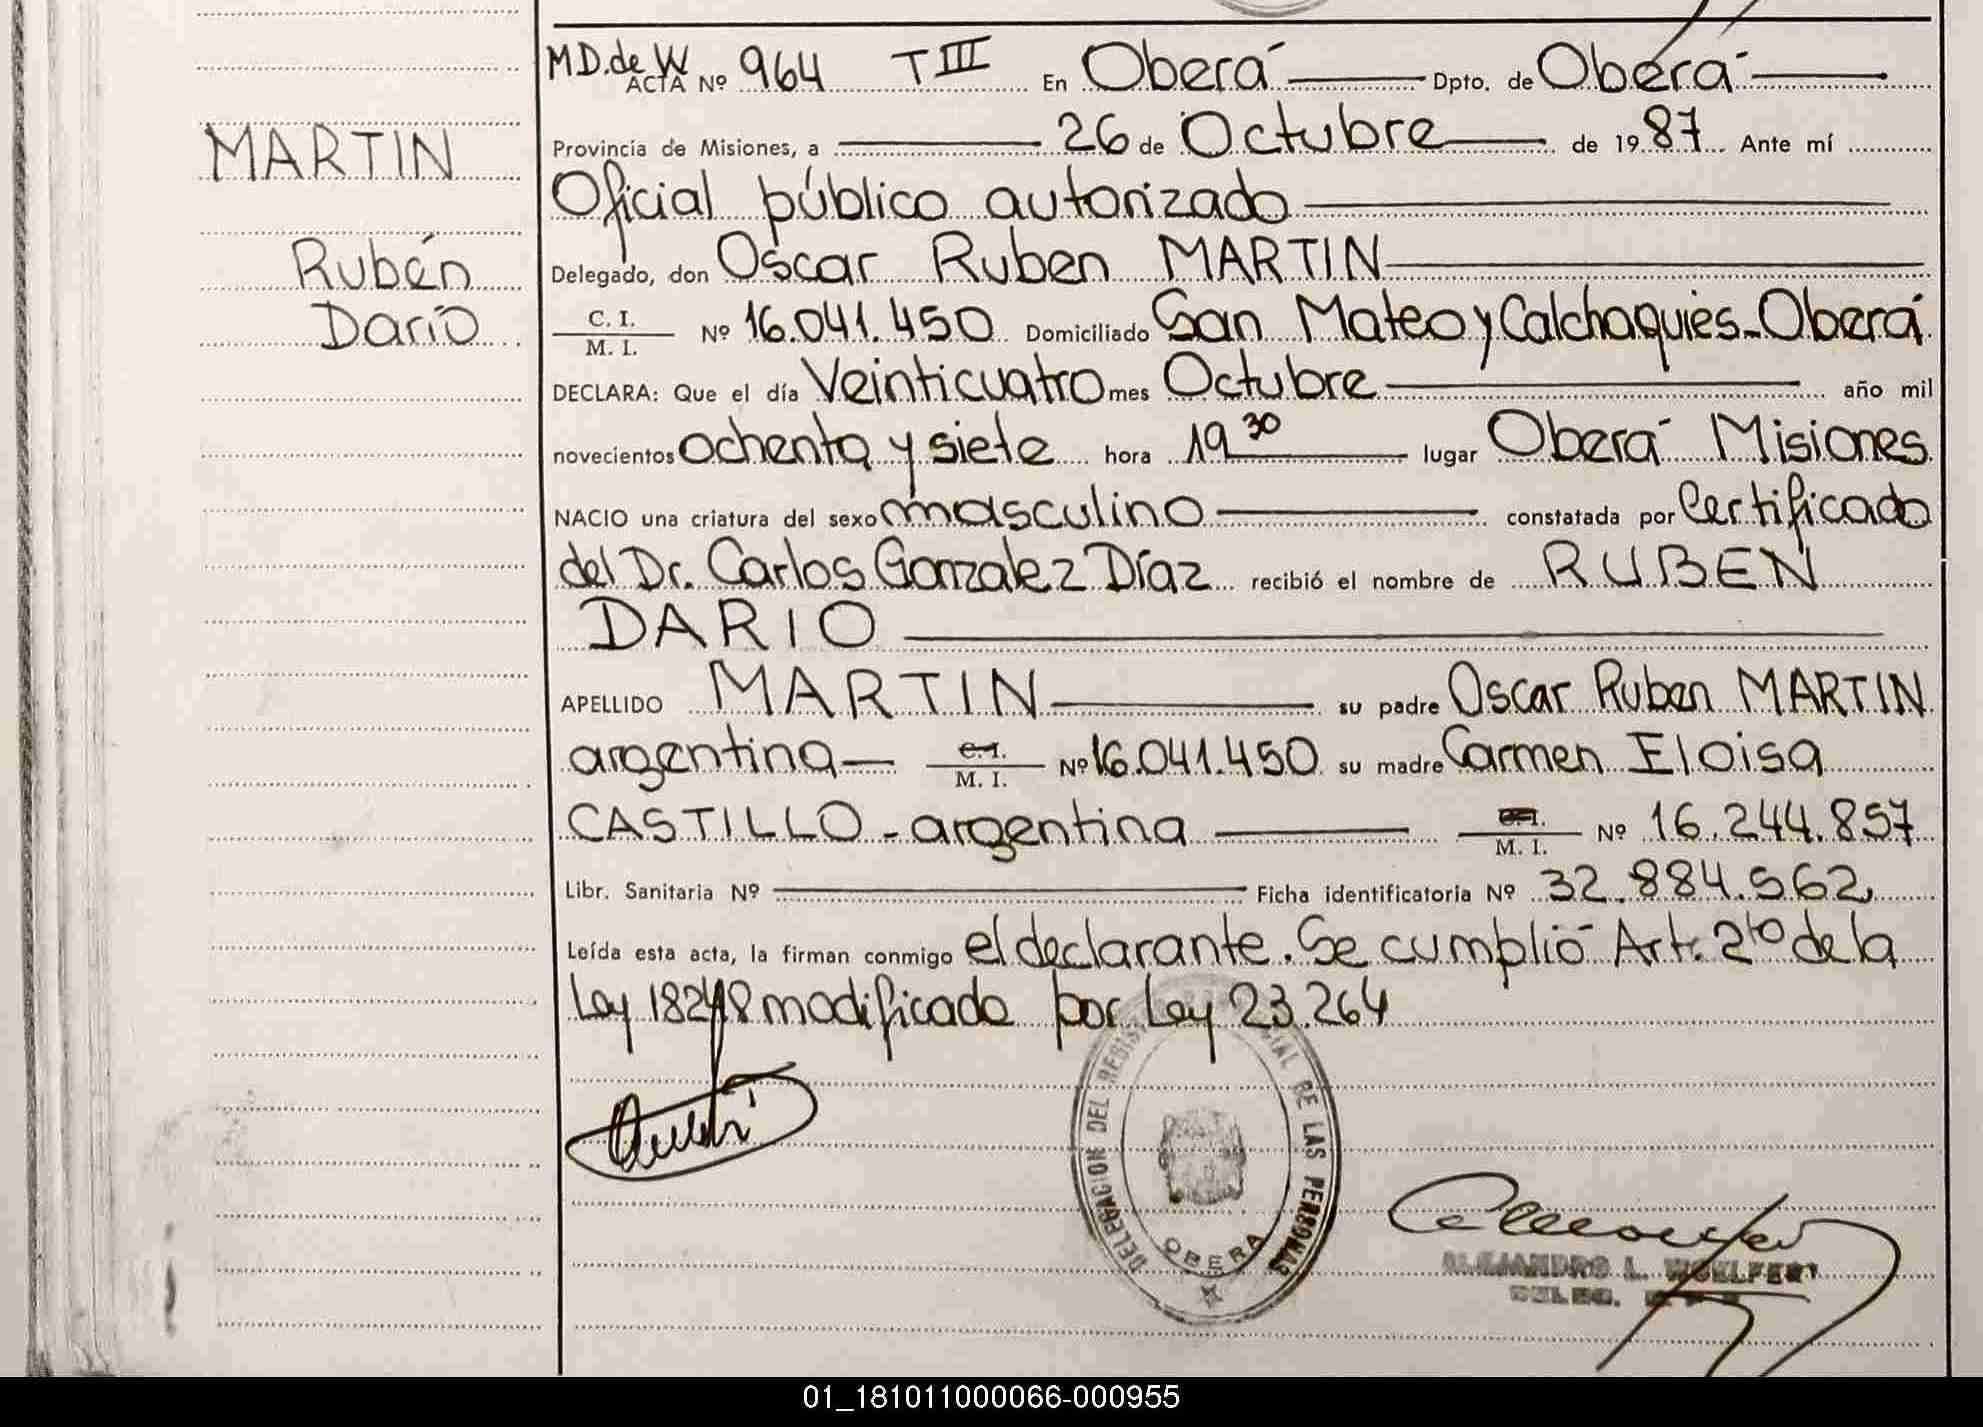 MD.de W
ACTA Nº 964 T III En Oberá Dpto. de Oberá
Provincia de Misiones, a 26 de Octubre de 1987 Ante mí
Oficial público autorizado
Delegado, don Oscar Ruben MARTIN
C. I. / M. I. Nº 16.041.450 Domiciliado San Mateo y Calchaquies - Oberá
DECLARA: Que el día Veinticuatro mes Octubre año mil
novecientos ochenta y siete hora 19 30 lugar Oberá Misiones
NACIO una criatura del sexo masculino constatada por Certificado
del Dr. Carlos Gonzalez Díaz recibió el nombre de RUBEN
DARIO
APELLIDO MARTIN su padre Oscar Ruben MARTIN
argentina C.I. / M. I. Nº 16.041.450 su madre Carmen Eloisa
CASTILLO - argentina C.I. / M. I. Nº 16.244.857
Libr. Sanitaria Nº Ficha identificatoria Nº 32.884.562
Leída esta acta, la firman conmigo el declarante. Se cumplió Art. 2to de la
Ley 18248 modificado por Ley 23.264
MARTIN
Rubén
Darío
DELEGACION DEL REGIS IAL DE LAS PERSONAS
OBERA
ALEJANDRO L. WOELFERT
DELEG.
01_181011000066-000955